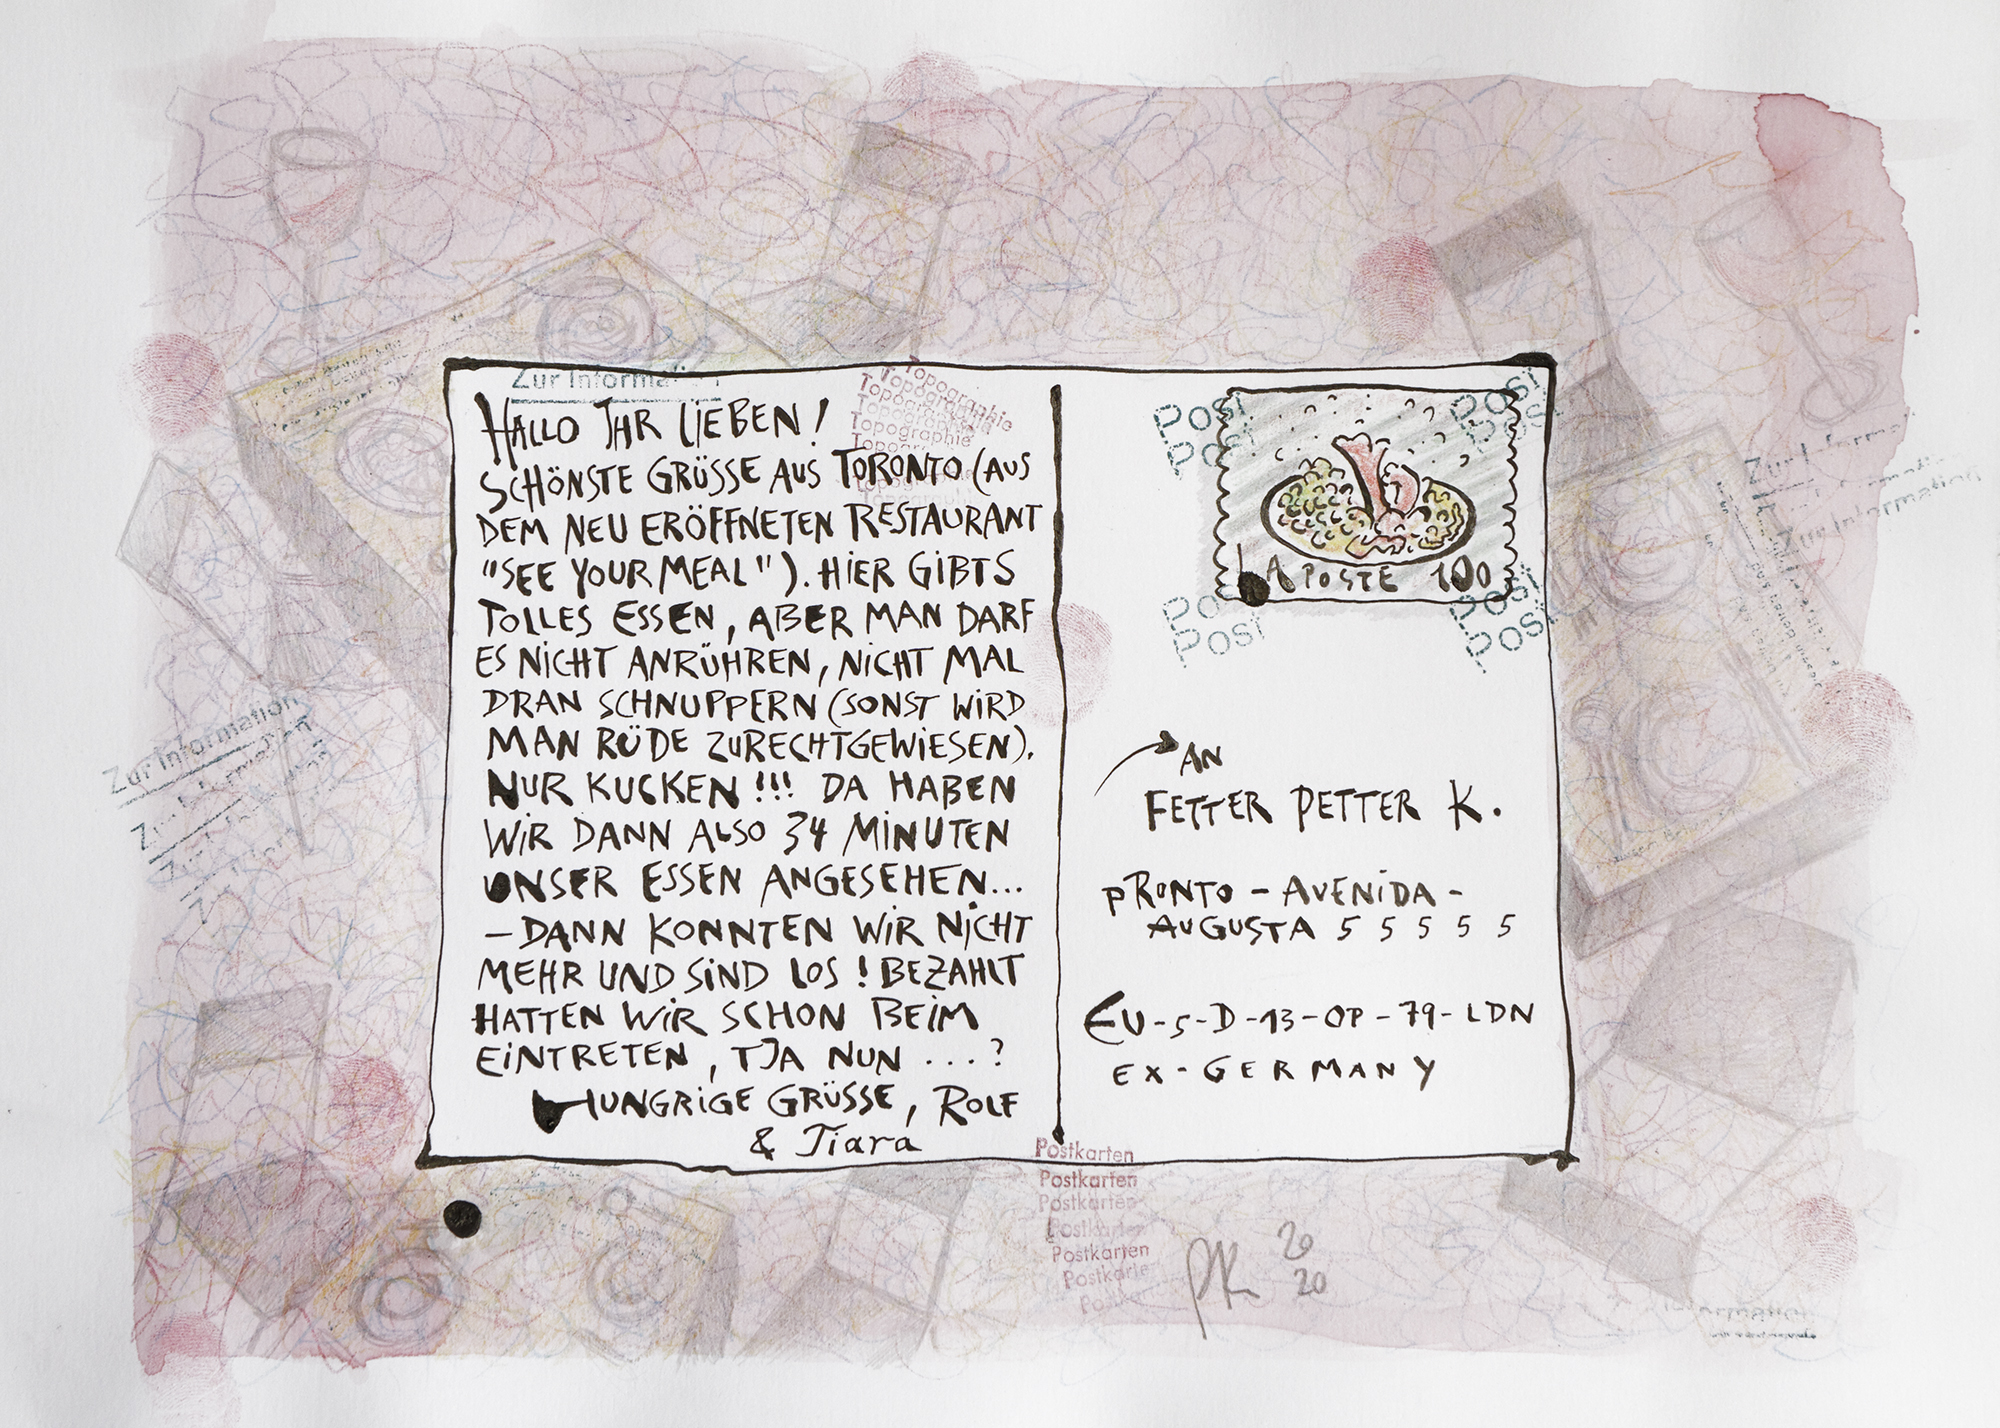 Zur Information
Topographie
Topographie
Topographie
Topographie
Topographie
Topographie
HALLO IHR LIEBEN!
SCHÖNSTE GRÜSSE AUS TORONTO (AUS
DEM NEU ERÖFFNETEN RESTAURANT
"SEE YOUR MEAL"). HIER GIBTS
TOLLES ESSEN, ABER MAN DARF
ES NICHT ANRÜHREN, NICHT MAL
DRAN SCHNUPPERN (SONST WIRD
MAN RÜDE ZURECHTGEWIESEN).
NUR KUCKEN!!! DA HABEN
WIR DANN ALSO 34 MINUTEN
UNSER ESSEN ANGESEHEN...
– DANN KONNTEN WIR NICHT
MEHR UND SIND LOS! BEZAHLT
HATTEN WIR SCHON BEIM
EINTRETEN, TJA NUN ...?
HUNGRIGE GRÜSSE, ROLF
& Tiara
Posi
Posi
Posi
Posi
LA POSTE 100
Posi
Posi
Posi
Posi
AN
FETTER PETTER K.
PRONTO - AVENIDA -
AUGUSTA 5 5 5 5 5
EU-5-D-13-OP-79-LDN
EX-GERMANY
Zur Information
Zur Information
Zur Information
Zur Information
Postkarten
Postkarten
Postkarten
Postkarten
Postkarten
Postkarte
PK 20
20